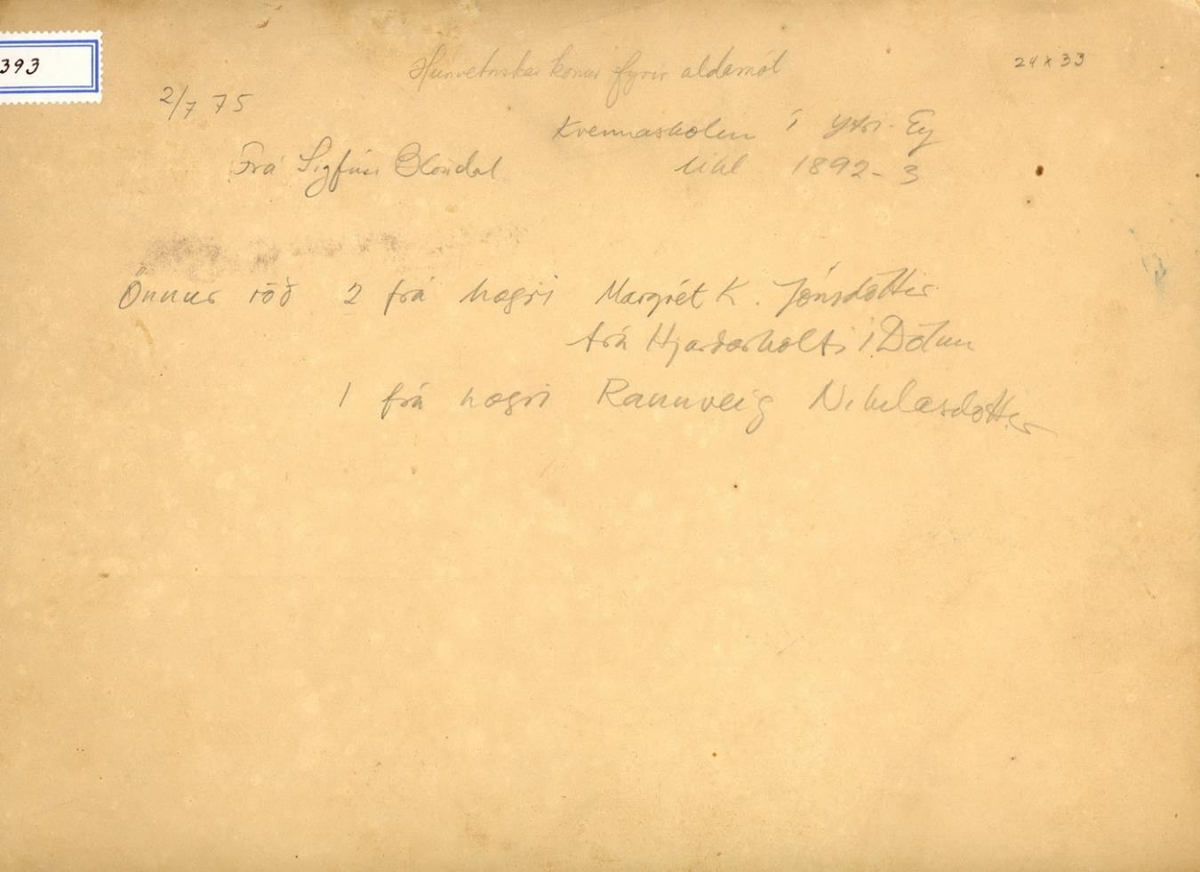 393
Húnvetnskar konur fyrir aldamót
24 x 33
2/7 75
Kvennaskolin í Ytri-Ey
Frá Sigfúsi Blöndal
1892-3
Önnur röð 2 frá hægri Margrét K. Jónsdottir
frá Hjarðarholti í Dölum
1 frá hægri Rannveig Nikulasdottir